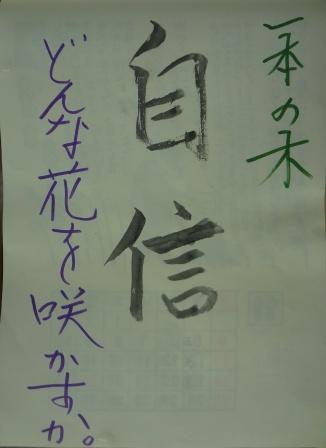 一本の木
自信
どんな花を咲かすか。